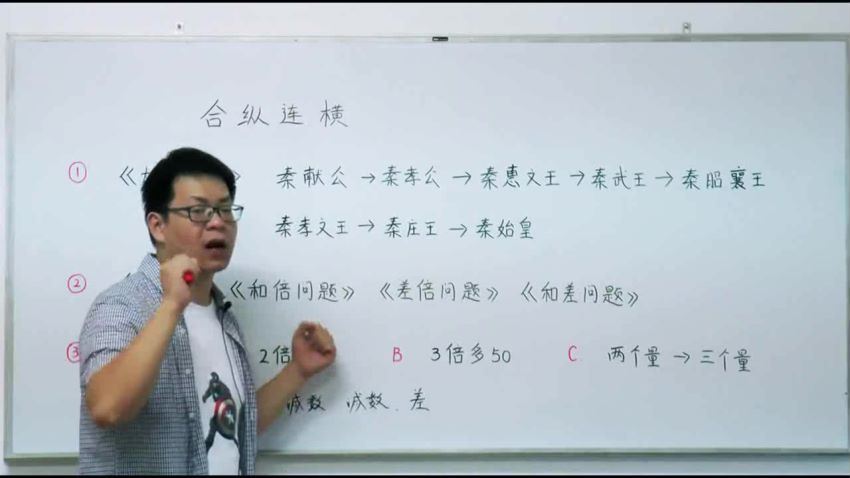 合纵连横
① 《 》 秦献公→秦孝公→秦惠文王→秦武王→秦昭襄王
秦孝文王→秦庄王→秦始皇
② 《和倍问题》 《差倍问题》 《和差问题》
③ 2倍 B 3倍多50 C. 两个量→三个量
减数 减数.差